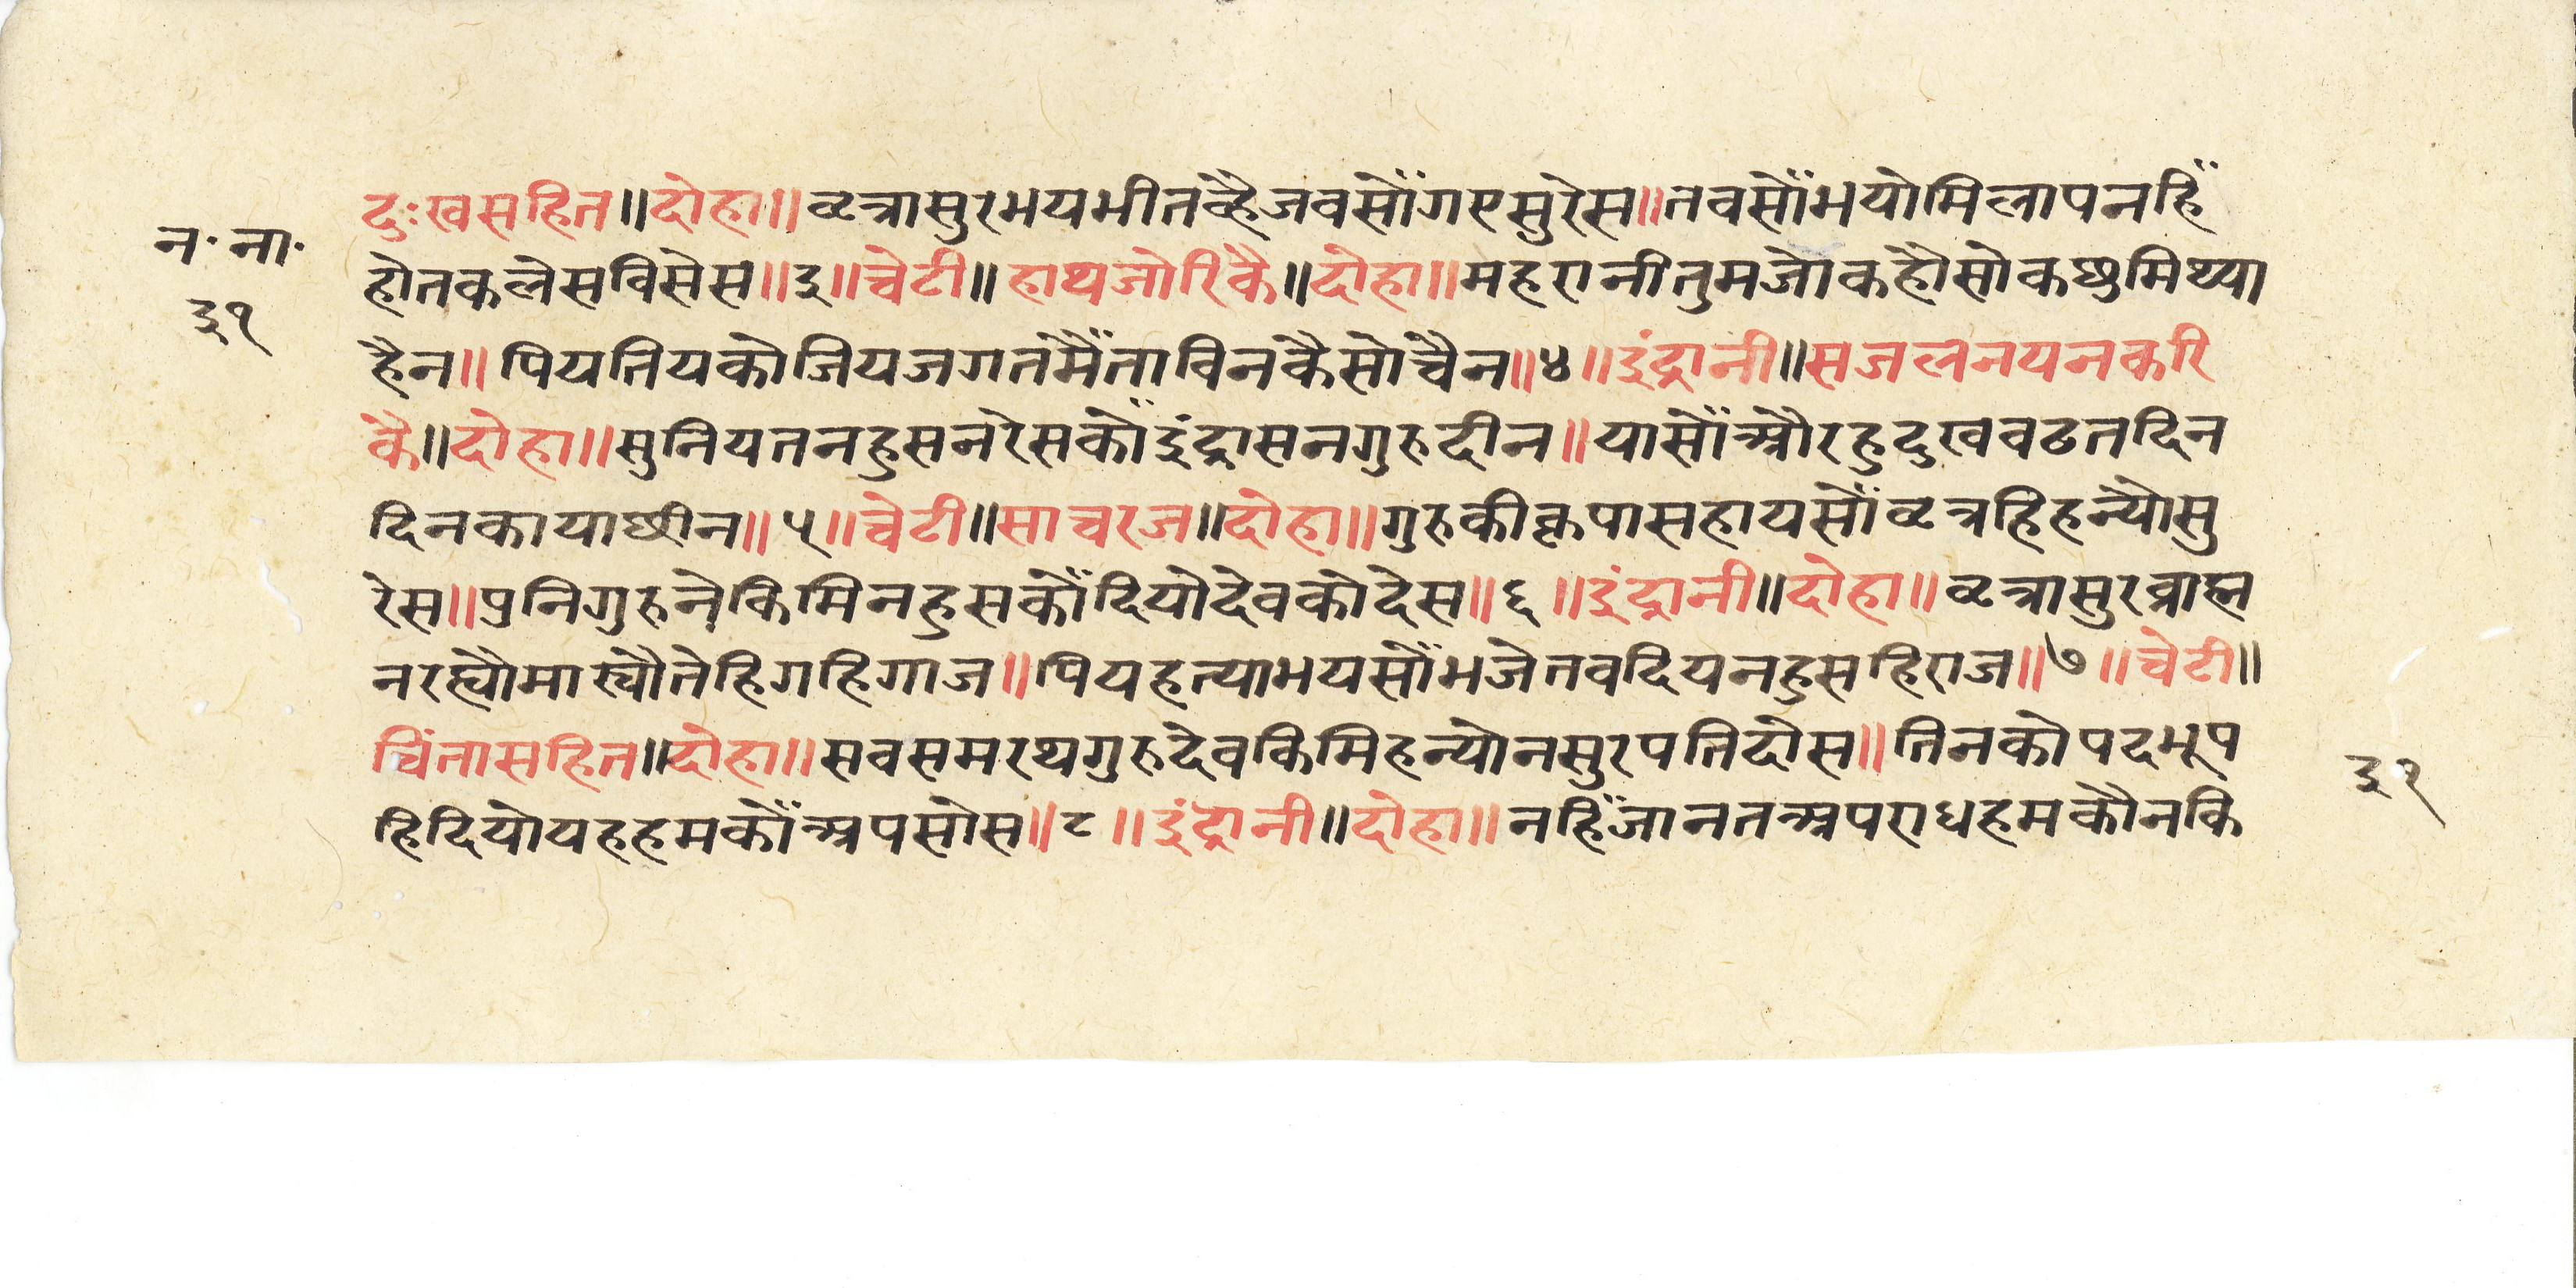 दुःखसहित॥दोहा॥वृत्रासुरभयभीतव्हैजवसौंगएसुरेस॥तवसौंभयोमिलापनहिँ
न॰ ना॰
होतकलेसविसेस॥३॥चेटी॥हाथजोरिकै॥दोहा॥महरानीतुमजोकहौसोकछुमिथ्या
३१
हैन॥पियतियकोजियजगतमैंताविनकैसोचैन॥४॥इंद्रानी॥सजलनयनकरि
कै॥दोहा॥सुनियतनहुसनरेसकौंइंद्रासनगुरुदीन॥यासौंऔरहुदुखवढतदिन
दिनकायाछीन॥५॥चेटी॥साचरज॥दोहा॥गुरुकीकृपासहायसौंवृत्रहिहन्यौसु
रेस॥पुनिगुरुनेकिमिनहुसकौंदियोदेवकोदेस॥६॥इंद्रानी॥दोहा॥वृत्रासुरव्राह्म
नरह्यौमाख्यौतेहिगहिगाज॥पियहत्याभयसौंभजेतवदियनहुसहिराज॥७॥चेटी॥
चिंतासहित॥दोहा॥सवसमरथगुरुदेवकिमिहन्योनसुरपतिदोस॥तिनकोपदभूप
३१
हिदियोयहहमकौंअपसोस॥८॥इंद्रानी॥दोहा॥नहिँजानतअपराधहमकौनकि